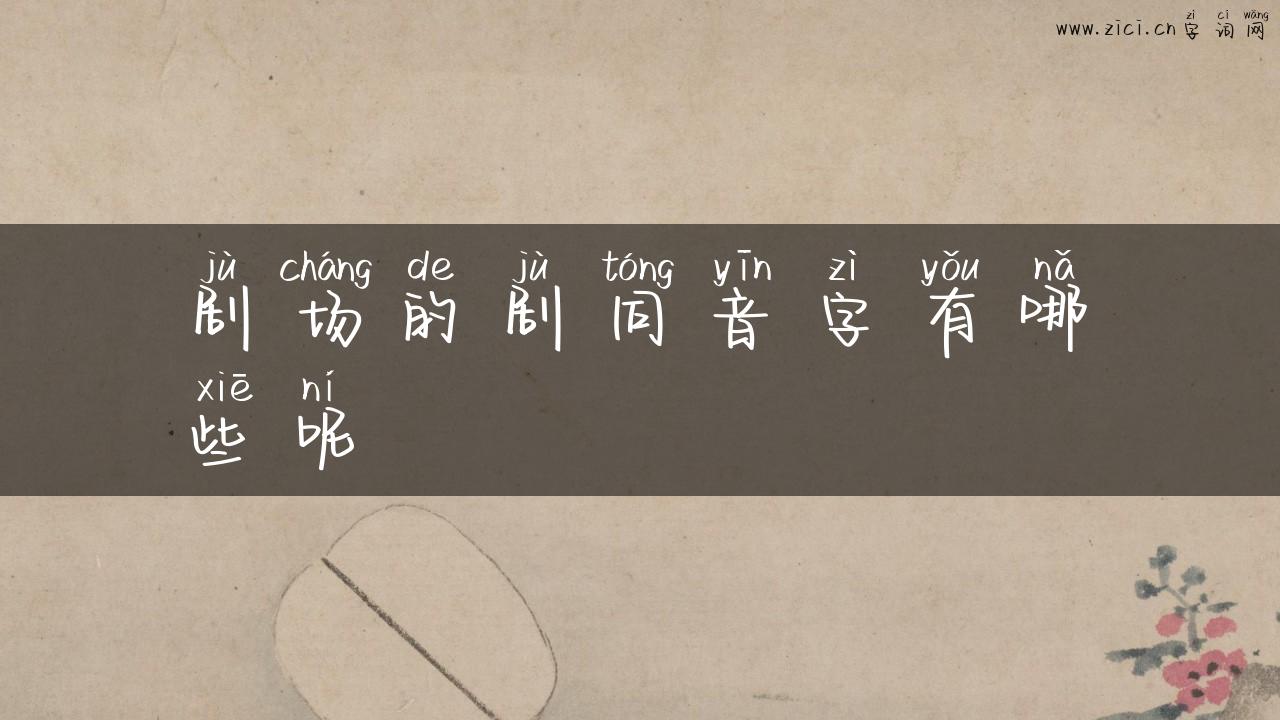 zì cí wǎng
www.zici.cn 字 词 网
jù chǎng de jù tóng yīn zì yǒu nǎ
剧 场 的 剧 同 音 字 有 哪
xiē ní
些 呢